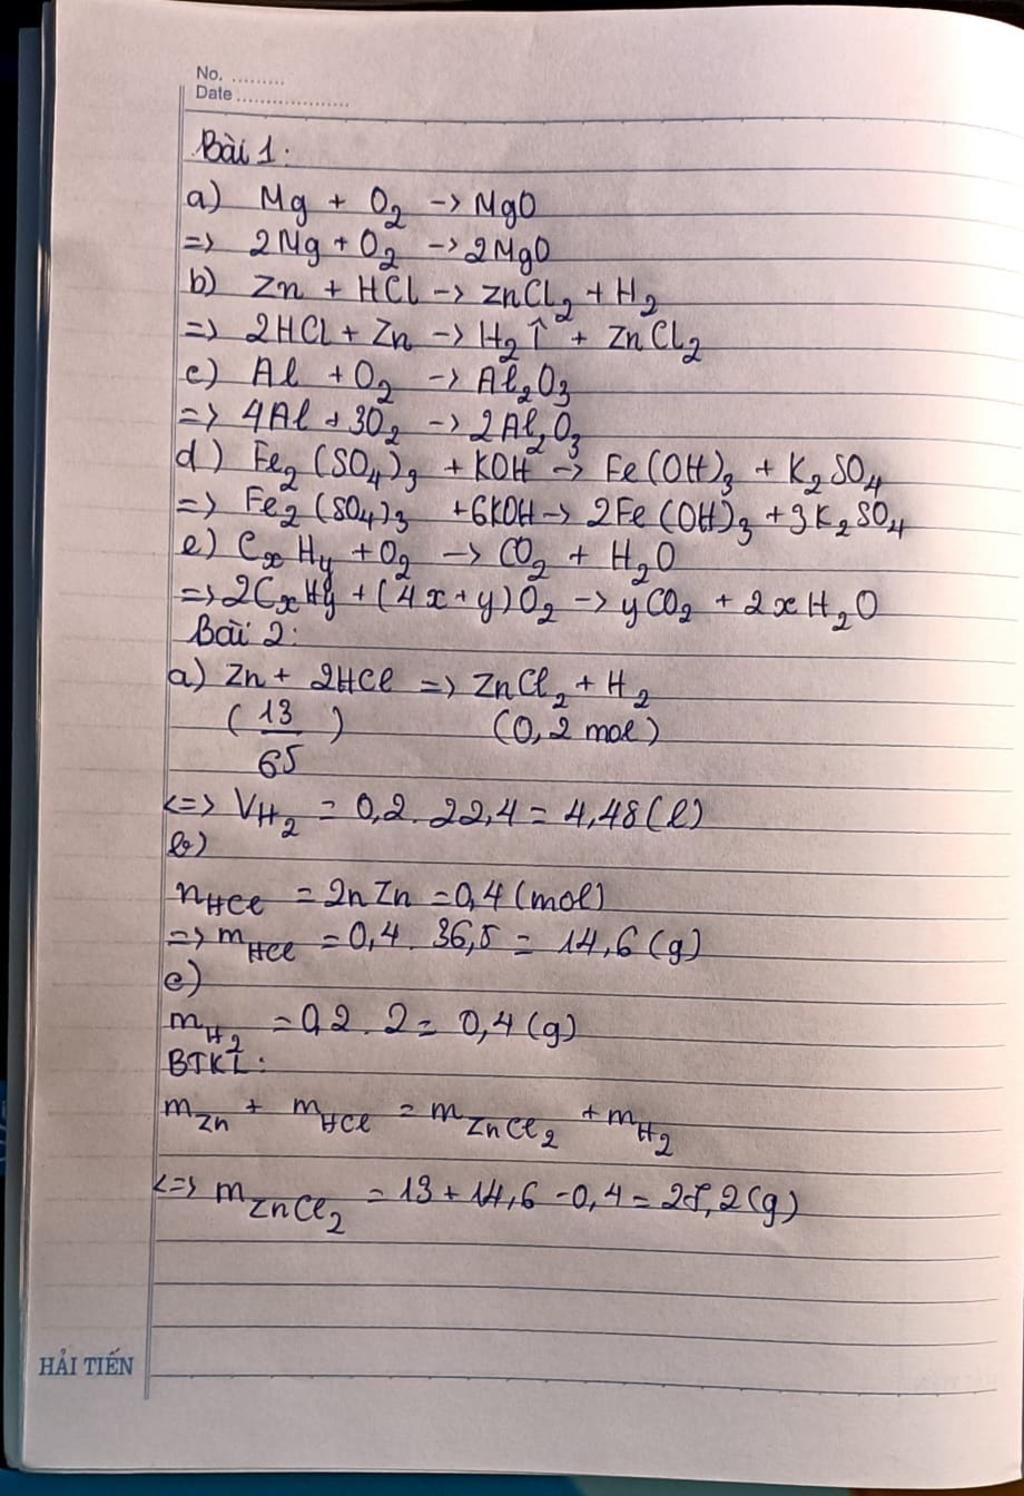 No. .........
Date ...................
Bài 1:
a) Mg + O2 -> MgO
=> 2Mg + O2 -> 2MgO
b) Zn + HCl -> ZnCl2 + H2
=> 2HCl + Zn -> H2↑ + ZnCl2
c) Al + O2 -> Al2O3
=> 4Al + 3O2 -> 2Al2O3
d) Fe2(SO4)3 + KOH -> Fe(OH)3 + K2SO4
=> Fe2(SO4)3 + 6KOH -> 2Fe(OH)3 + 3K2SO4
e) CxHy + O2 -> CO2 + H2O
=> 2CxHy + (4x+y)O2 -> yCO2 + 2xH2O
Bài 2:
a) Zn + 2HCl => ZnCl2 + H2
(13/65) (0,2 mol)
<=> VH2 = 0,2 . 22,4 = 4,48 (l)
b)
nHCl = 2nZn = 0,4 (mol)
=> mHCl = 0,4 . 36,5 = 14,6 (g)
c)
mH2 = 0,2 . 2 = 0,4 (g)
BTKL:
mZn + mHCl = mZnCl2 + mH2
<=> mZnCl2 = 13 + 14,6 - 0,4 = 27,2 (g)
HẢI TIẾN